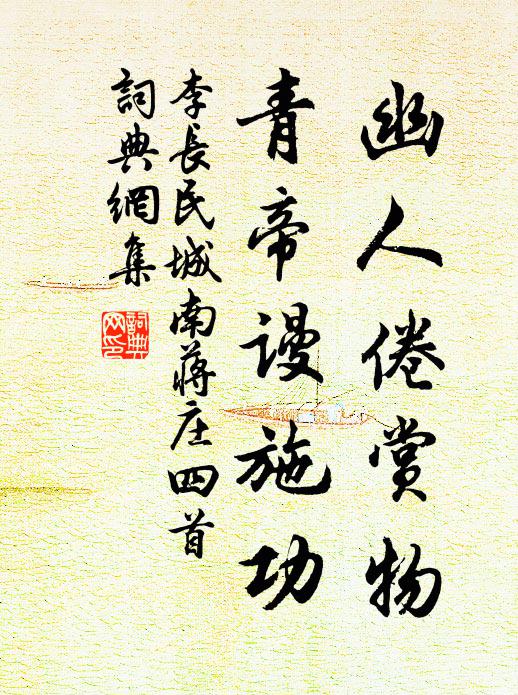 幽人倦賞物
青帝謾施功
李長民城南蔣庄四首
詞典網集
詞典
网印